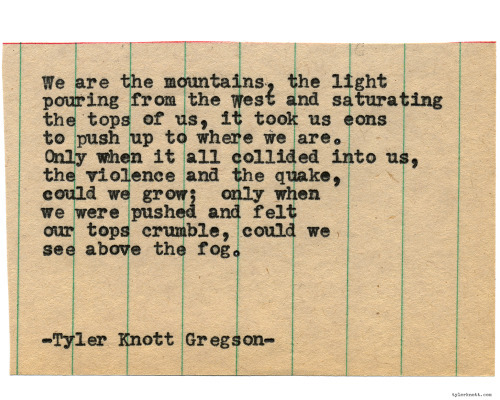 We are the mountains, the light
pouring from the west and saturating
the tops of us, it took us eons
to push up to where we are.
Only when it all collided into us,
the violence and the quake,
could we grow; only when
we were pushed and felt
our tops crumble, could we
see above the fog.
-Tyler Knott Gregson-
tylerknott.com